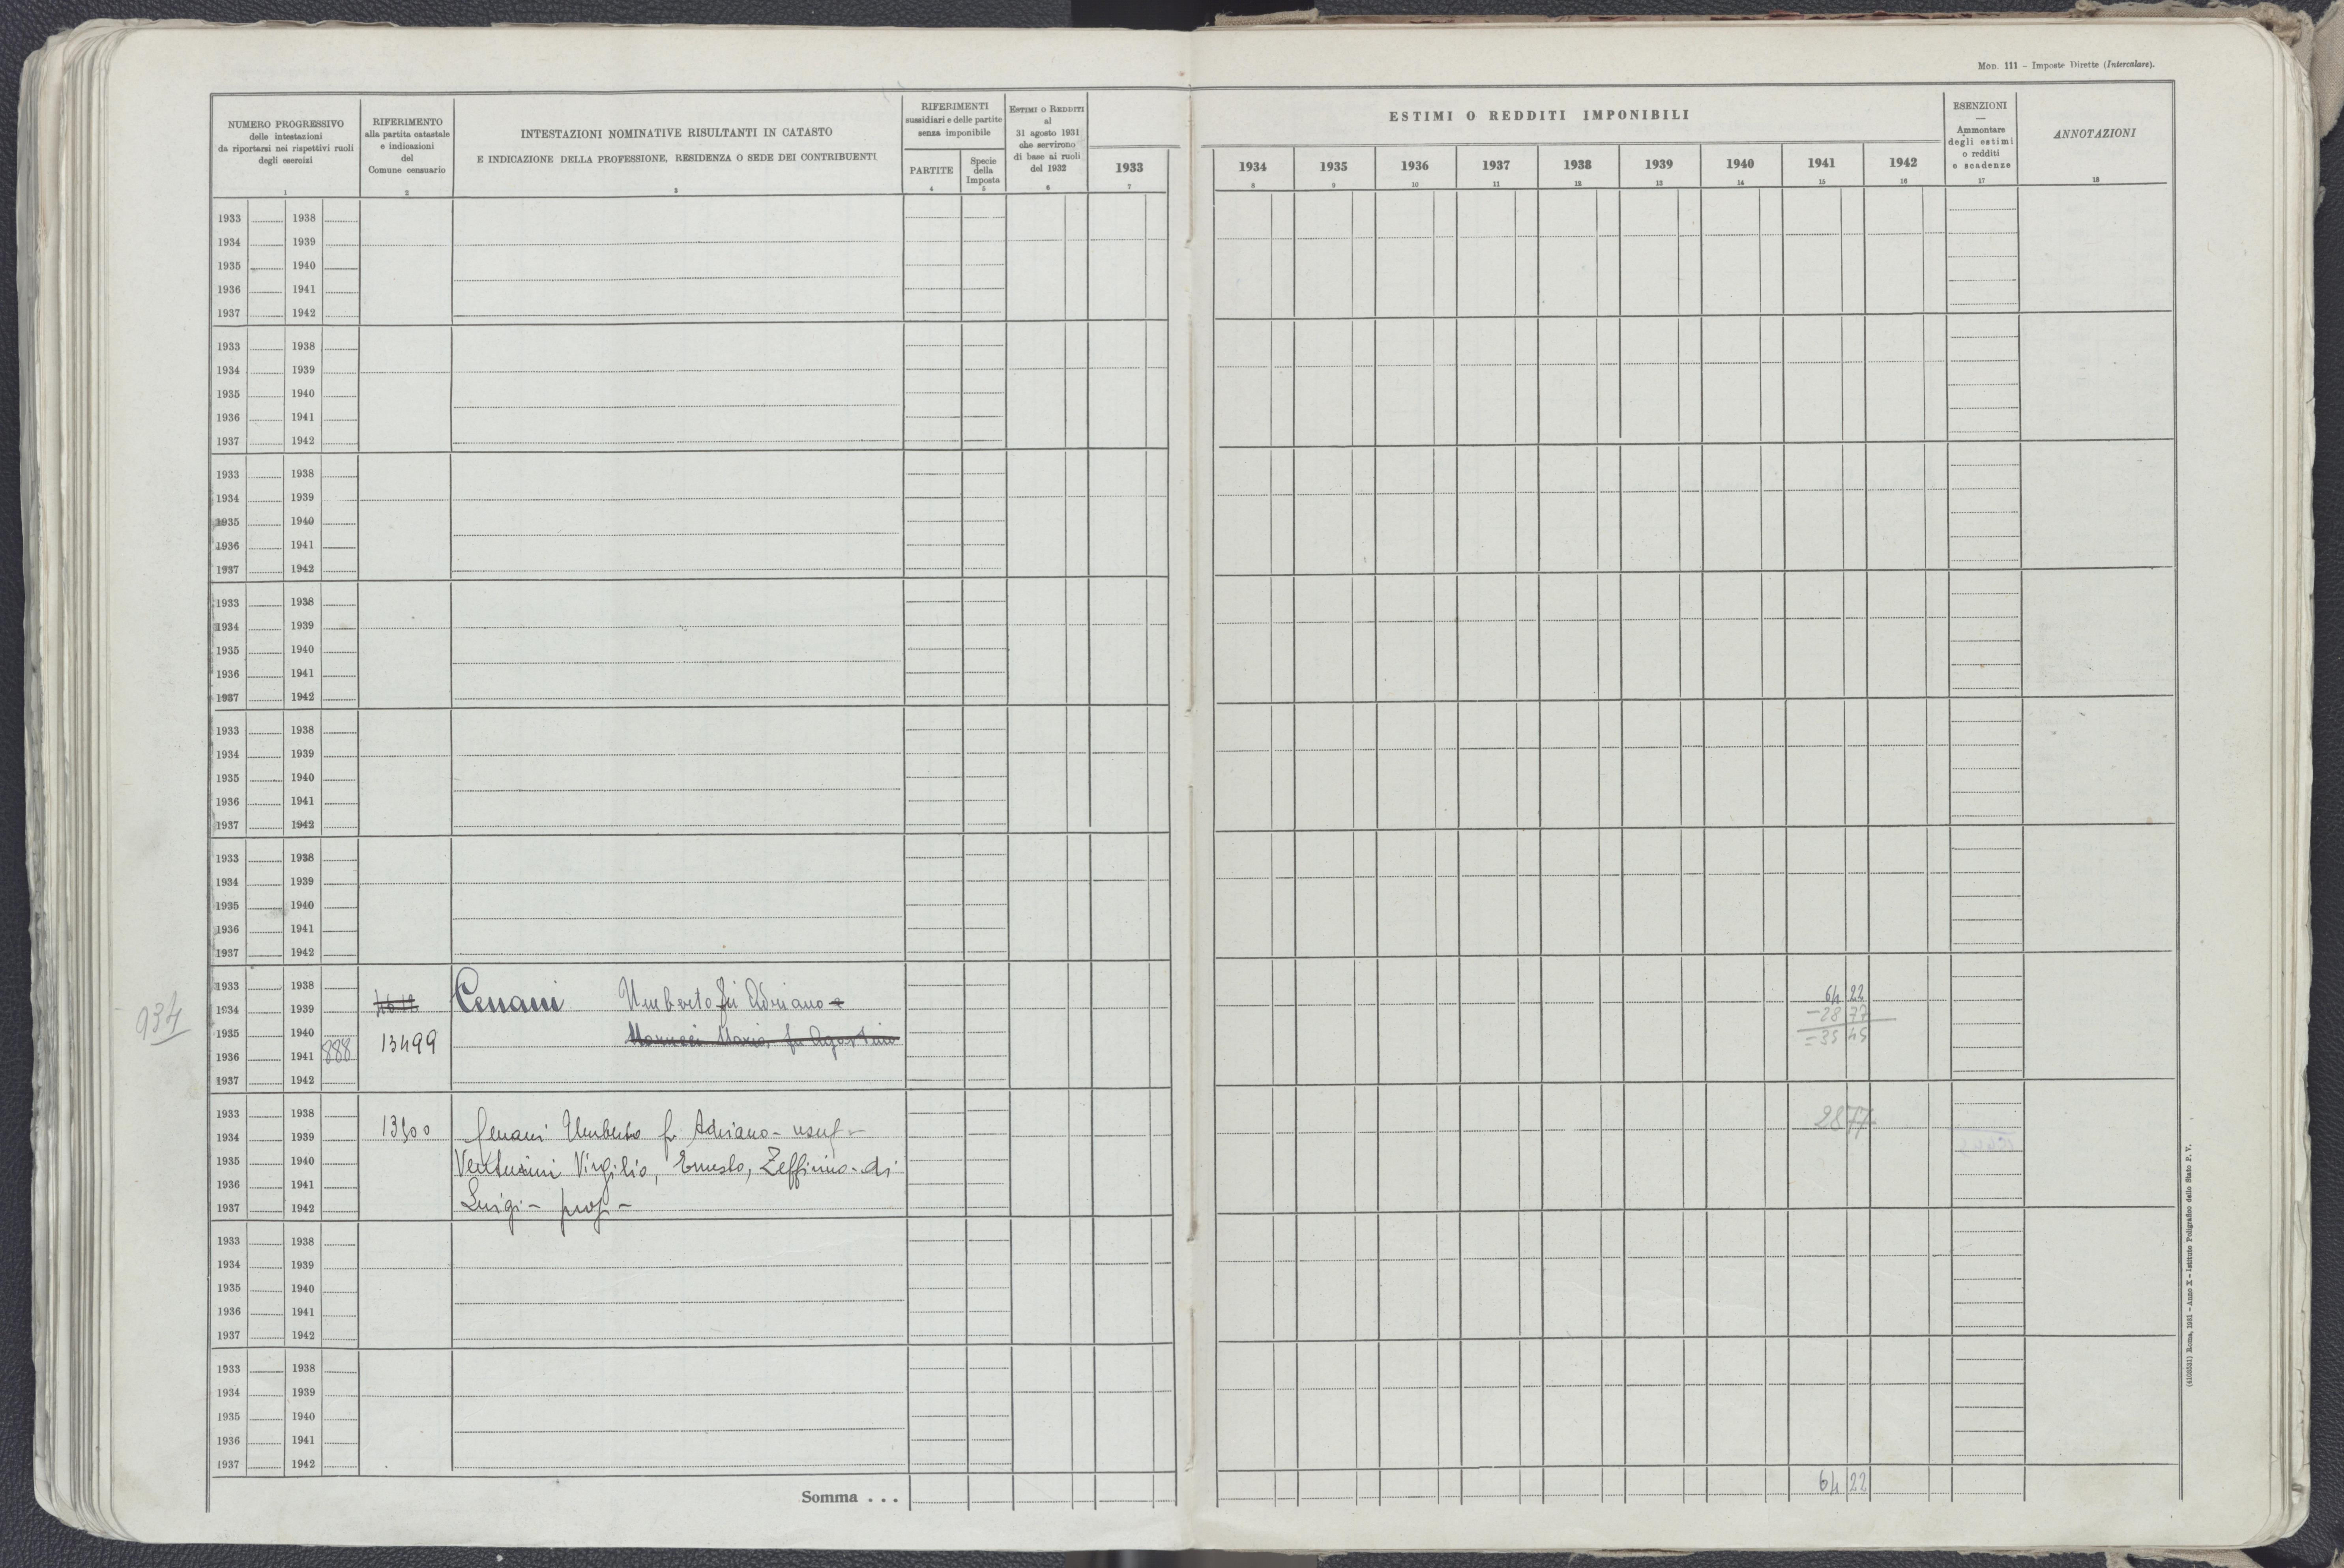 Mod. 111 – Imposte Dirette (Intercalare).
NUMERO PROGRESSIVO
delle intestazioni
da riportarsi nei rispettivi ruoli
degli esercizi
1
RIFERIMENTO
alla partita catastale
e indicazioni
del
Comune censuario
2
INTESTAZIONI NOMINATIVE RISULTANTI IN CATASTO
E INDICAZIONE DELLA PROFESSIONE, RESIDENZA O SEDE DEI CONTRIBUENTI
3
RIFERIMENTI
sussidiari e delle partite
senza imponibile
PARTITE
4
Specie
della
Imposta
5
ESTIMI O REDDITI
al
31 agosto 1931
che servirono
di base ai ruoli
del 1932
6
1933
7
ESTIMI O REDDITI IMPONIBILI
1934 1935 1936 1937 1938 1939 1940 1941 1942
8 9 10 11 12 13 14 15 16
ESENZIONI
—
Ammontare
degli estimi
o redditi
e scadenze
17
ANNOTAZIONI
18
1933 1938
1934 1939
1935 1940
1936 1941
1937 1942
1933 1938
1934 1939
1935 1940
1936 1941
1937 1942
1933 1938
1934 1939
1935 1940
1936 1941
1937 1942
1933 1938
1934 1939
1935 1940
1936 1941
1937 1942
1933 1938
1934 1939
1935 1940
1936 1941
1937 1942
1933 1938
1934 1939
1935 1940
1936 1941
1937 1942
1933 1938
934 1934 1939 Cenani Umberto fu Adriano e 64 22
1935 1940 13499 Maria fu Agostino – 28 77
1936 1941 888 = 35 45
1937 1942
1933 1938 13500 2877
1934 1939 Cenani Umberto fu Adriano – usuf –
1935 1940 Venturini Virgilio, Ernesto, Zeffirino di
1936 1941
1937 1942 Luigi – prop –
1933 1938
1934 1939
1935 1940
1936 1941
1937 1942
1933 1938
1934 1939
1935 1940
1936 1941
1937 1942
Somma . . . 64 22
(4103531) Roma, 1931 – Anno X – Istituto Poligrafico dello Stato P. V.